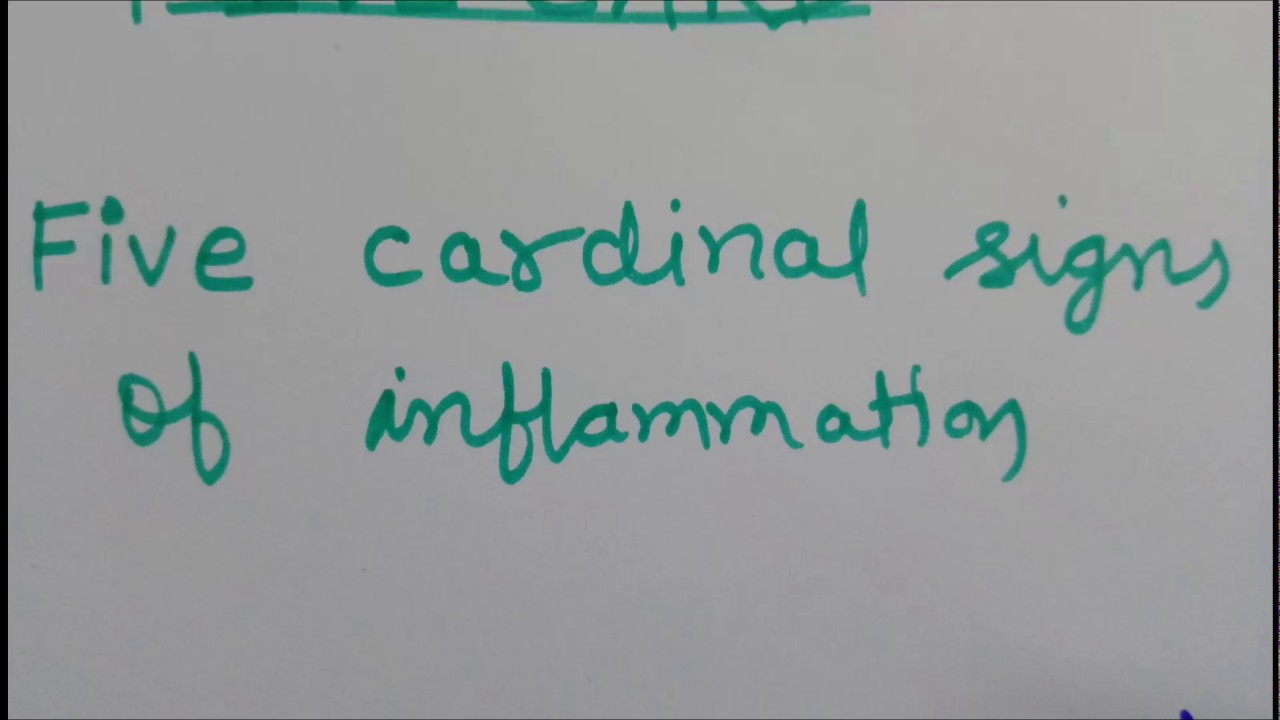 Five cardinal signs
of inflammation